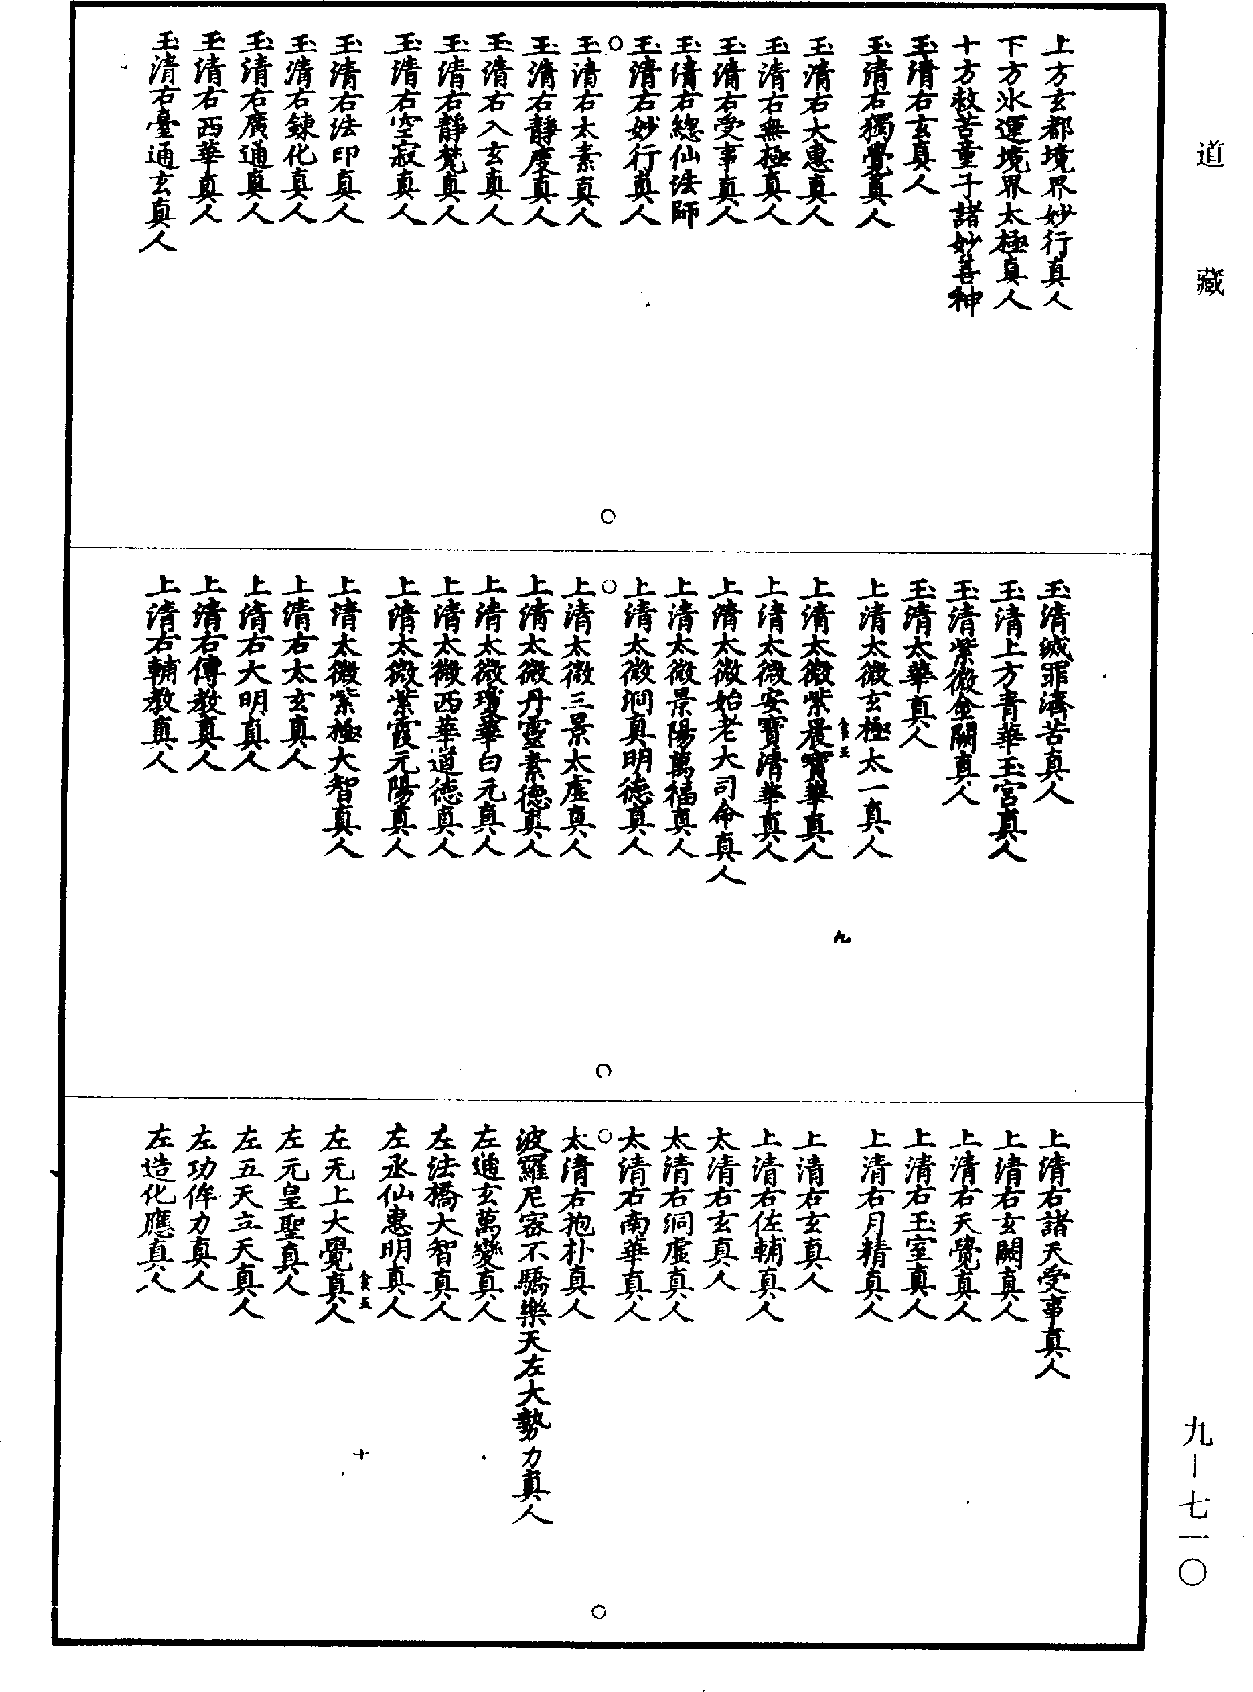 道藏
上方玄都境界妙行真人
下方水運境界太極真人
十方救苦童子諸妙善神
玉清右玄真人
玉清右獨覺真人
玉清右大惠真人
玉清右無極真人
玉清右受事真人
玉清右總仙法師
玉清右妙行真人
玉清右太素真人
玉清右靜度真人
玉清右入玄真人
玉清右靜梵真人
玉清右空寂真人
玉清右法印真人
玉清右鍊化真人
玉清右廣通真人
玉清右西華真人
玉清右臺通玄真人
玉清滅罪濟苦真人
玉清上方青華玉宮真人
玉清紫微金闕真人
玉清太華真人
上清太微玄極太一真人
食五
九
上清太微紫晨寶華真人
上清太微安寶清華真人
上清太微始老大司命真人
上清太微景陽萬福真人
上清太微洞真明德真人
上清太微三景太虛真人
上清太微丹靈素德真人
上清太微瓊華白元真人
上清太微西華道德真人
上清太微紫霞元陽真人
上清太微紫極大智真人
上清右太玄真人
上清右大明真人
上清右傳教真人
上清右輔教真人
上清右諸天受事真人
上清右玄闕真人
上清右天覺真人
上清右玉室真人
上清右月精真人
上清右玄真人
上清右佐輔真人
太清右玄真人
太清右洞虛真人
太清右南華真人
太清右抱朴真人
波羅尼密不驕樂天左大勢力真人
左通玄萬變真人
左法橋大智真人
左丞仙惠明真人
食五
十
左无上大覺真人
左元皇聖真人
左五天立天真人
左功侔力真人
左造化應真人
九－七一〇